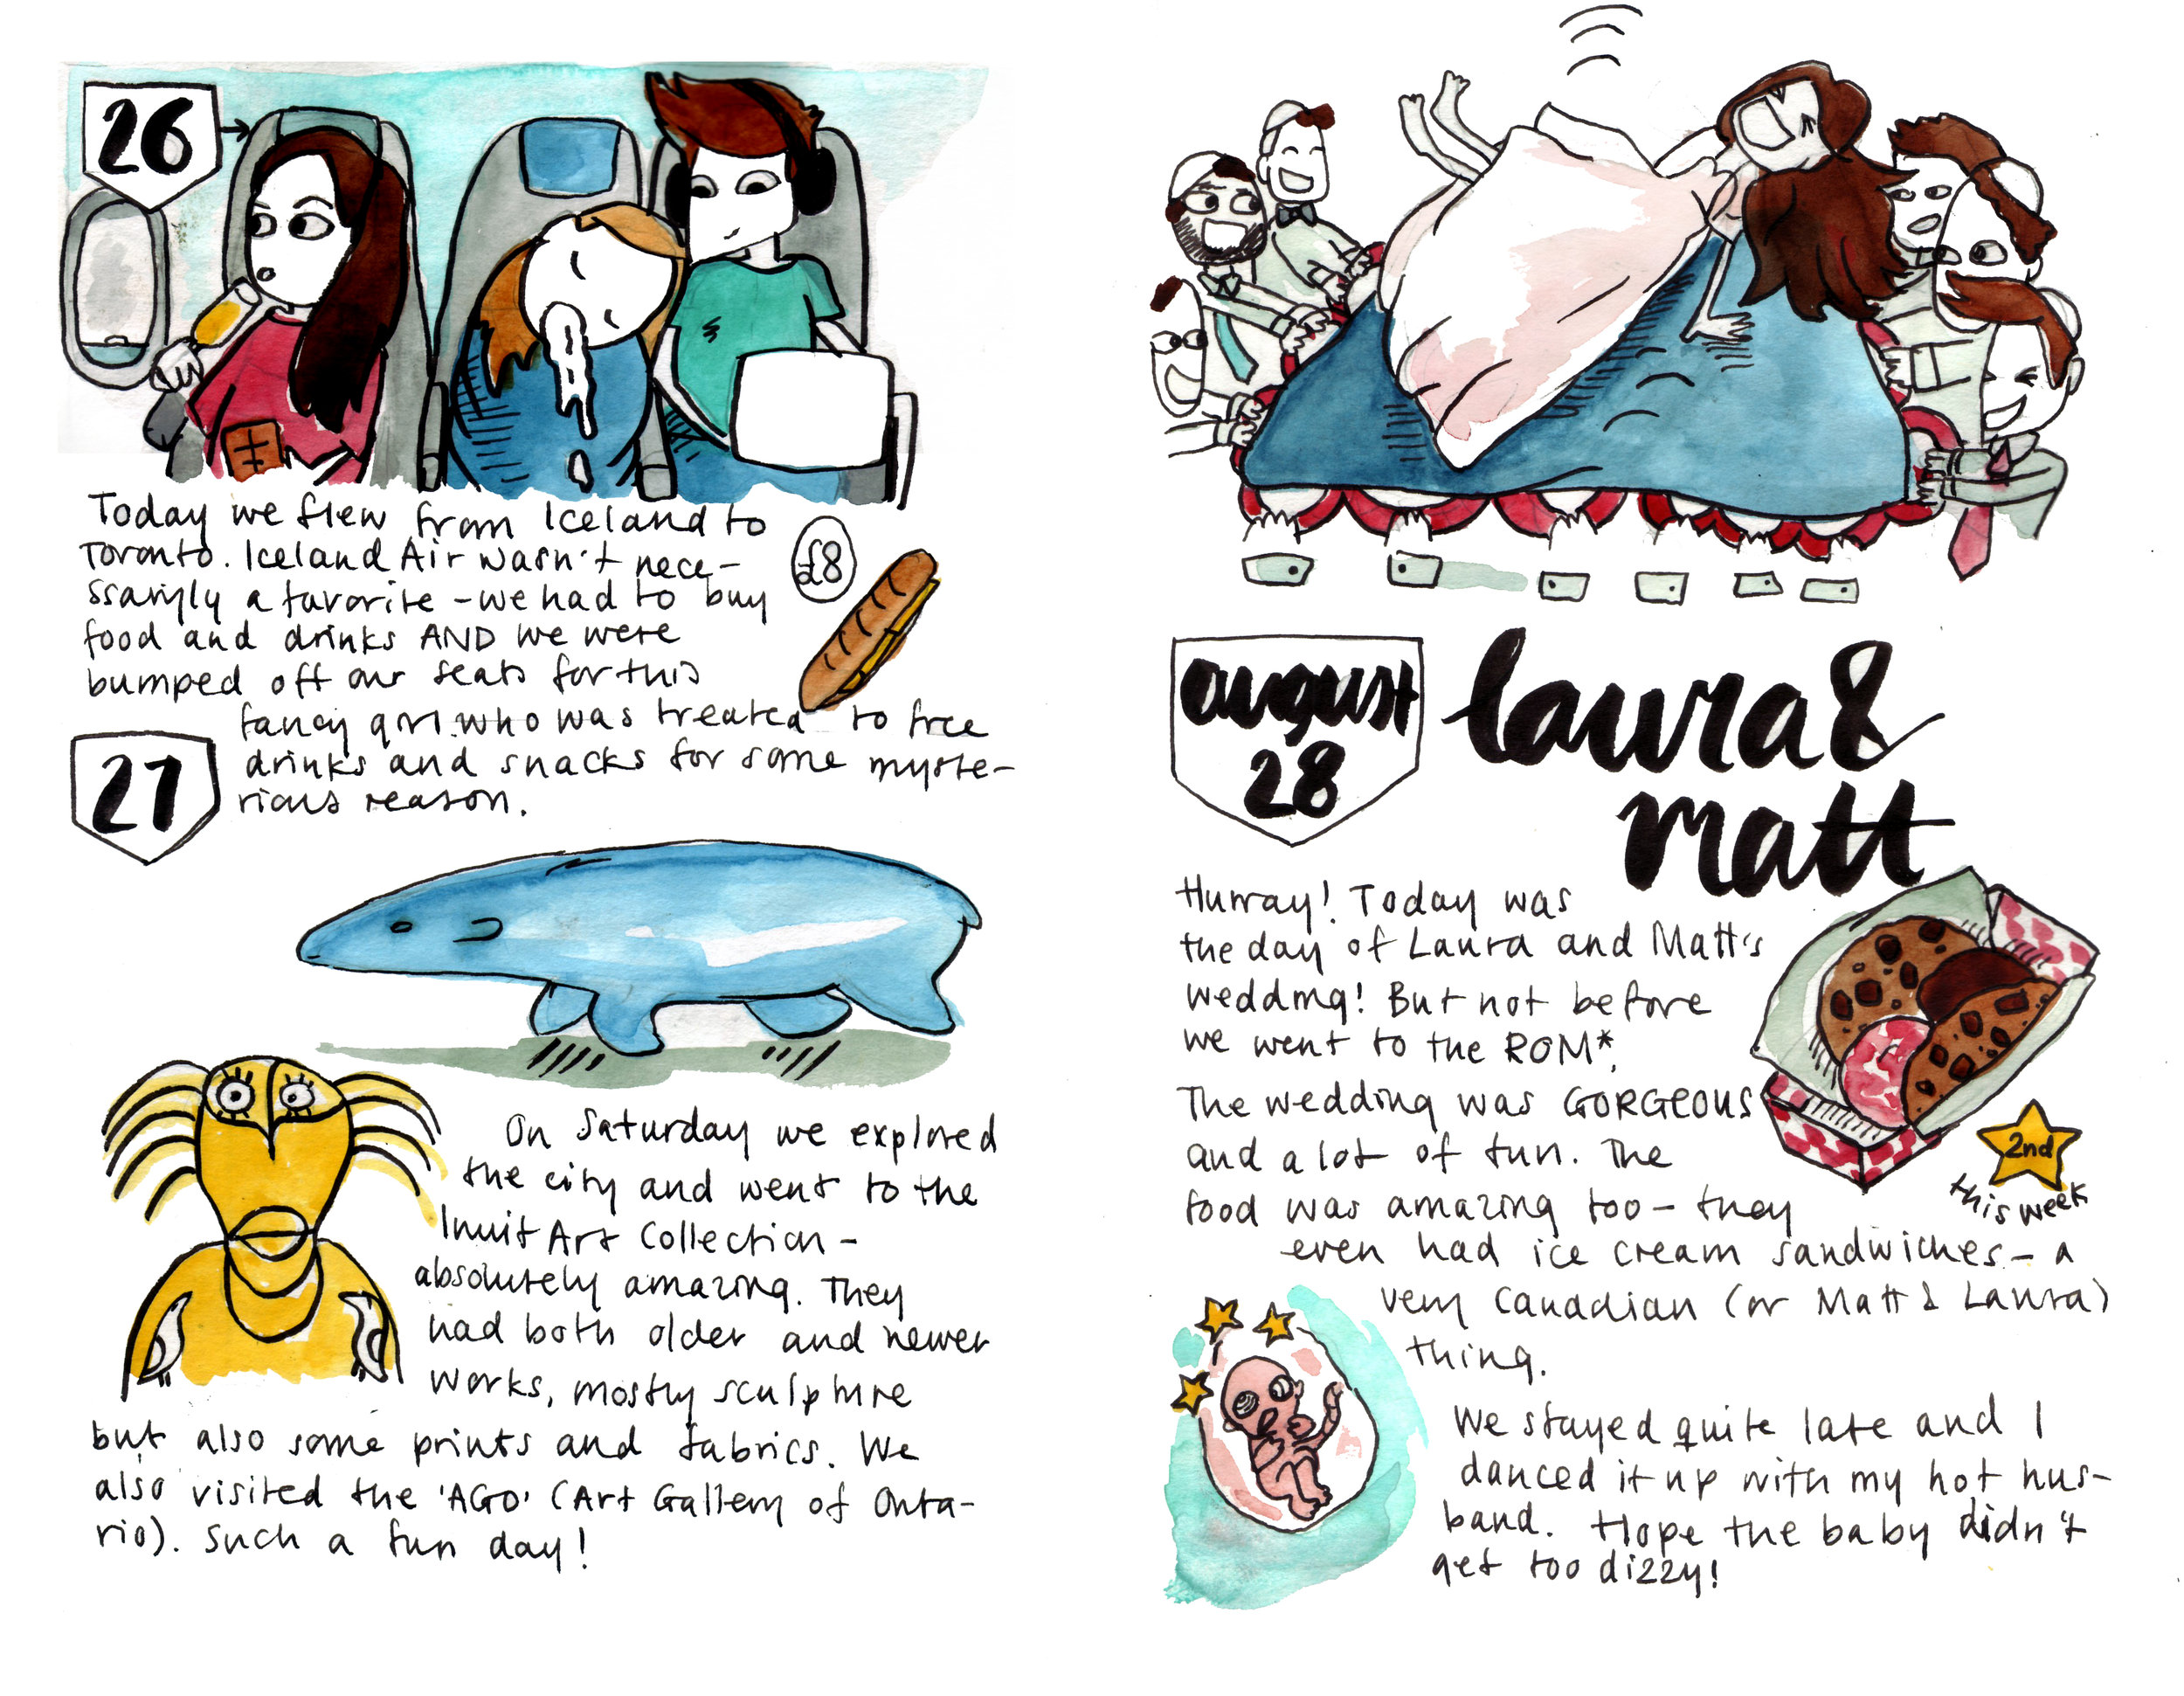 26
Today we flew from Iceland to
Toronto. Iceland Air wasn't nece-
ssarily a favorite - we had to buy
food and drinks AND we were
bumped off our seats for this
fancy girl who was treated to free
drinks and snacks for some myste-
rious reason.
£8
27
On Saturday we explored
the city and went to the
Inuit Art Collection -
absolutely amazing. They
had both older and newer
works, mostly sculpture
but also some prints and fabrics. We
also visited the 'AGO' (Art Gallery of Onta-
rio). Such a fun day!
august
28
laura &
matt
Hurray! Today was
the day of Laura and Matt's
wedding! But not before
we went to the ROM*.
The wedding was GORGEOUS
and a lot of fun. The
food was amazing too - they
even had ice cream sandwiches - a
very Canadian (or Matt & Laura)
thing.
2nd
this week
We stayed quite late and I
danced it up with my hot hus-
band. Hope the baby didn't
get too dizzy!